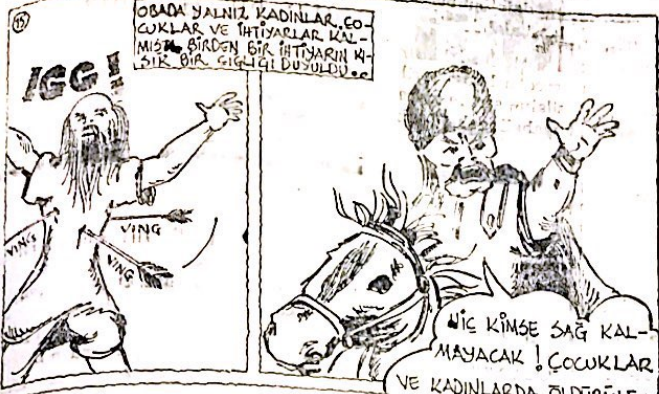 35
OBADA YALNIZ KADINLAR, ÇO-
CUKLAR VE İHTİYARLAR KAL-
MIŞTI. BİRDEN BİR İHTİYARIN KI-
SIK BİR ÇIĞLIĞI DUYULDU..
IGG!
VING
VING
VING
HİÇ KİMSE SAĞ KAL-
MAYACAK! ÇOCUKLAR
VE KADINLARDA ÖLDÜRÜLE-